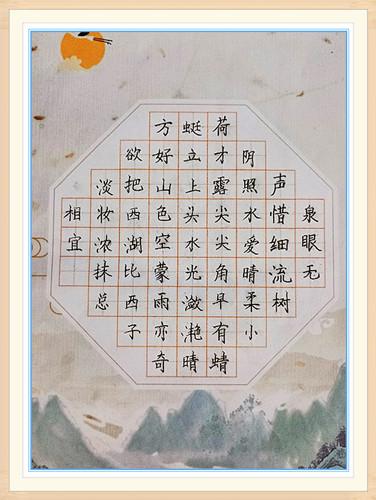 泉眼无
声惜细流树
阴照水爱晴柔小
荷才露尖尖角早有蜻
蜓立上头水光潋滟晴
方好山色空蒙雨亦奇
欲把西湖比西子
淡妆浓抹总
相宜